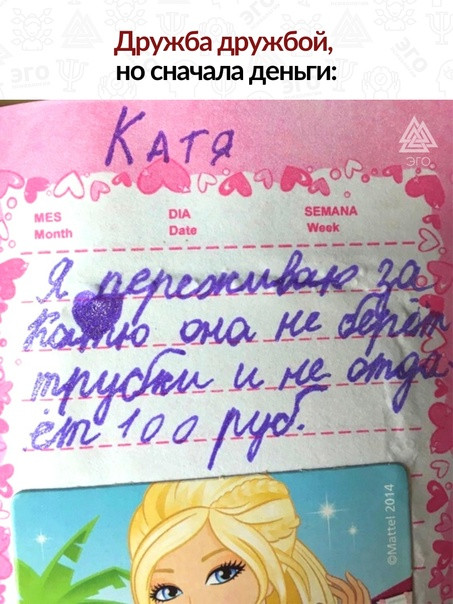 Дружба дружбой,
но сначала деньги:
ЭГО
Катя
MES DIA SEMANA
Month Date Week
Я переживаю за
Катю она не берёт
трубки и не отда-
ёт 100 руб.
©Mattel 2014